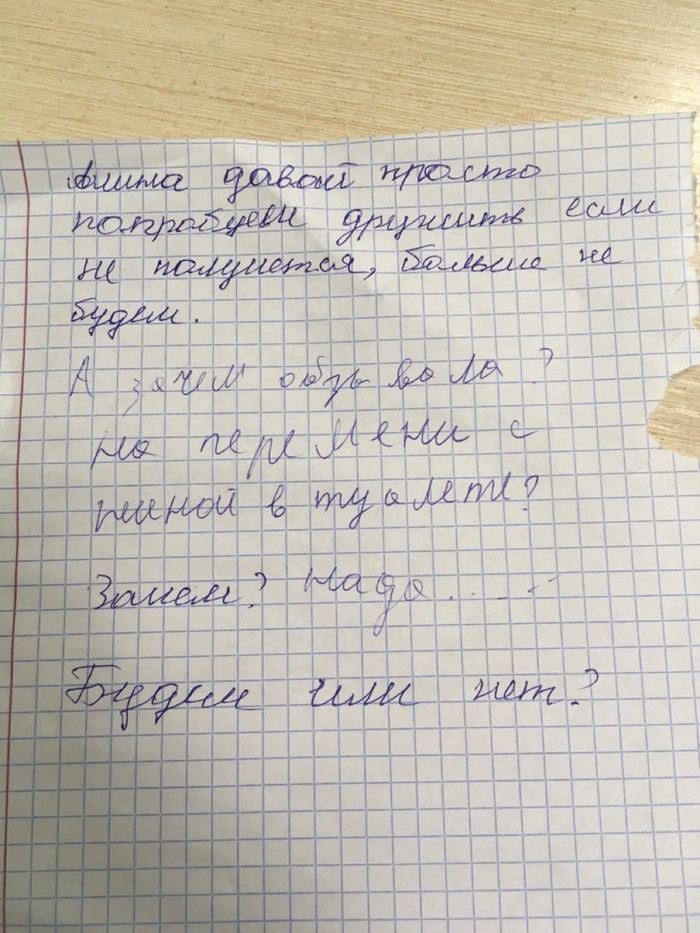 Алина давай просто
попробуем дружить если
не получится, больше не
будем.
А зачем обзывала?
на перемени с
в туалете?
Зачем? Надо.....
Будем или нет?